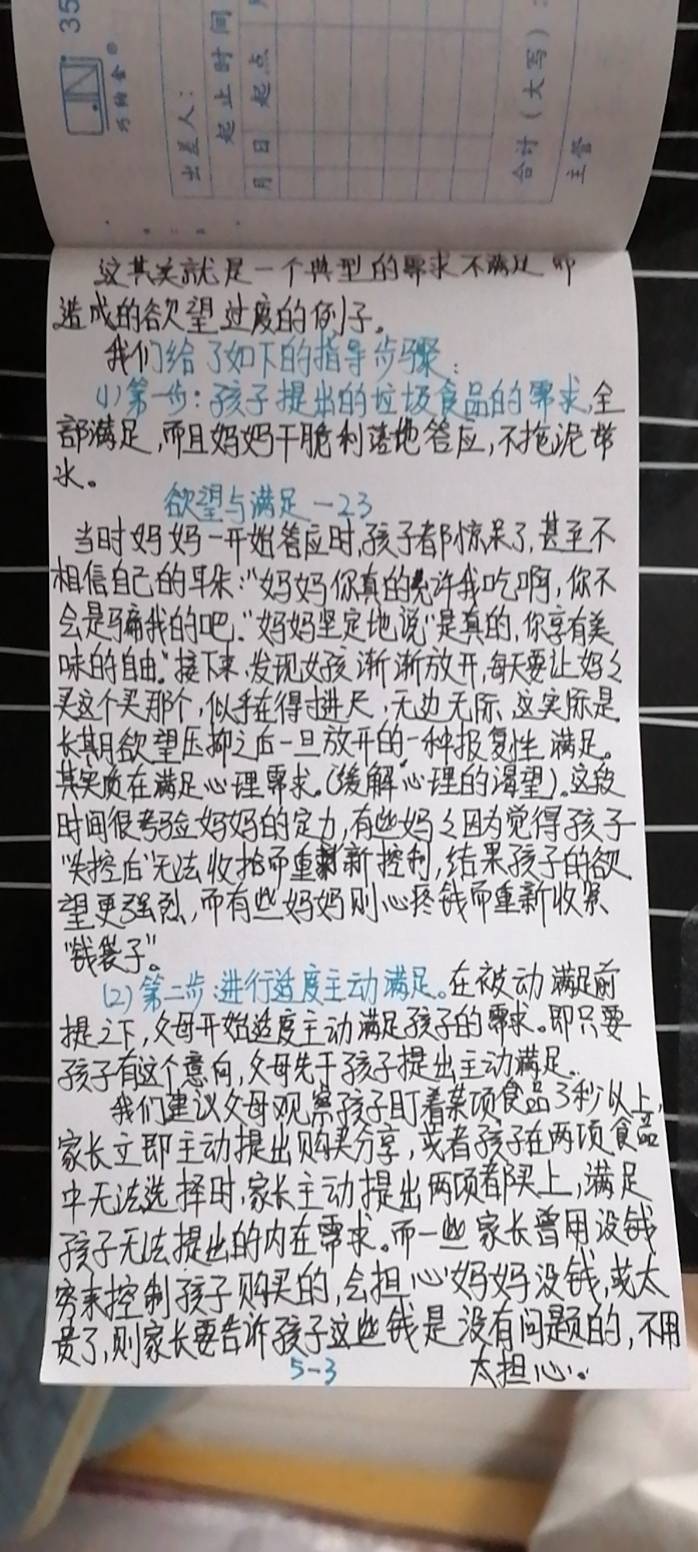 35
巧纳舍®
出差人：
起止时间
月 日 起点
合计（大写）：
主管
这其实就是一个典型的需求不满足而
造成的欲望过度的例子。
我们给了如下的指导步骤：
(1)第一步：孩子提出的垃圾食品的需求,全
部满足,而且妈妈干脆利落地答应,不拖泥带
水。
欲望与满足－23
当时妈妈一开始答应时,孩子都惊呆了,甚至不
相信自己的耳朵:"妈妈你真的允许我吃啊,你不
会是骗我的吧."妈妈坚定地说"是真的,你享有美
味的自由."接下来,发现女孩渐渐放开,每天要让妈々
买这个买那个,似乎在得寸进尺,无边无际.这实际是
长期欲望压抑之后一旦放开的一种报复性满足。
其实质在满足心理需求。(缓解心理的渴望)。这段
时间很考验妈妈的定力,有些妈々因为觉得孩子
"失控后"无法收拾而重新控制,结果孩子的欲
望更强烈,而有些妈妈则心疼钱而重新收紧
"钱袋子"。
(2)第二步:进行适度主动满足。在被动满足前
提之下,父母开始适度主动满足孩子的需求。即只要
孩子有这个意向,父母先于孩子提出主动满足.
我们建议父母观察孩子盯着某项食品3秒以上,
家长立即主动提出购买分享,或者孩子在两项食品
中无法选择时,家长主动提出两项都买上,满足
孩子无法提出的内在需求。而一些家长曾用没钱
穷来控制孩子购买的,会担心妈妈没钱,或太
贵了,则家长要告诉孩子这些钱是没有问题的,不用
太担心。
5-3